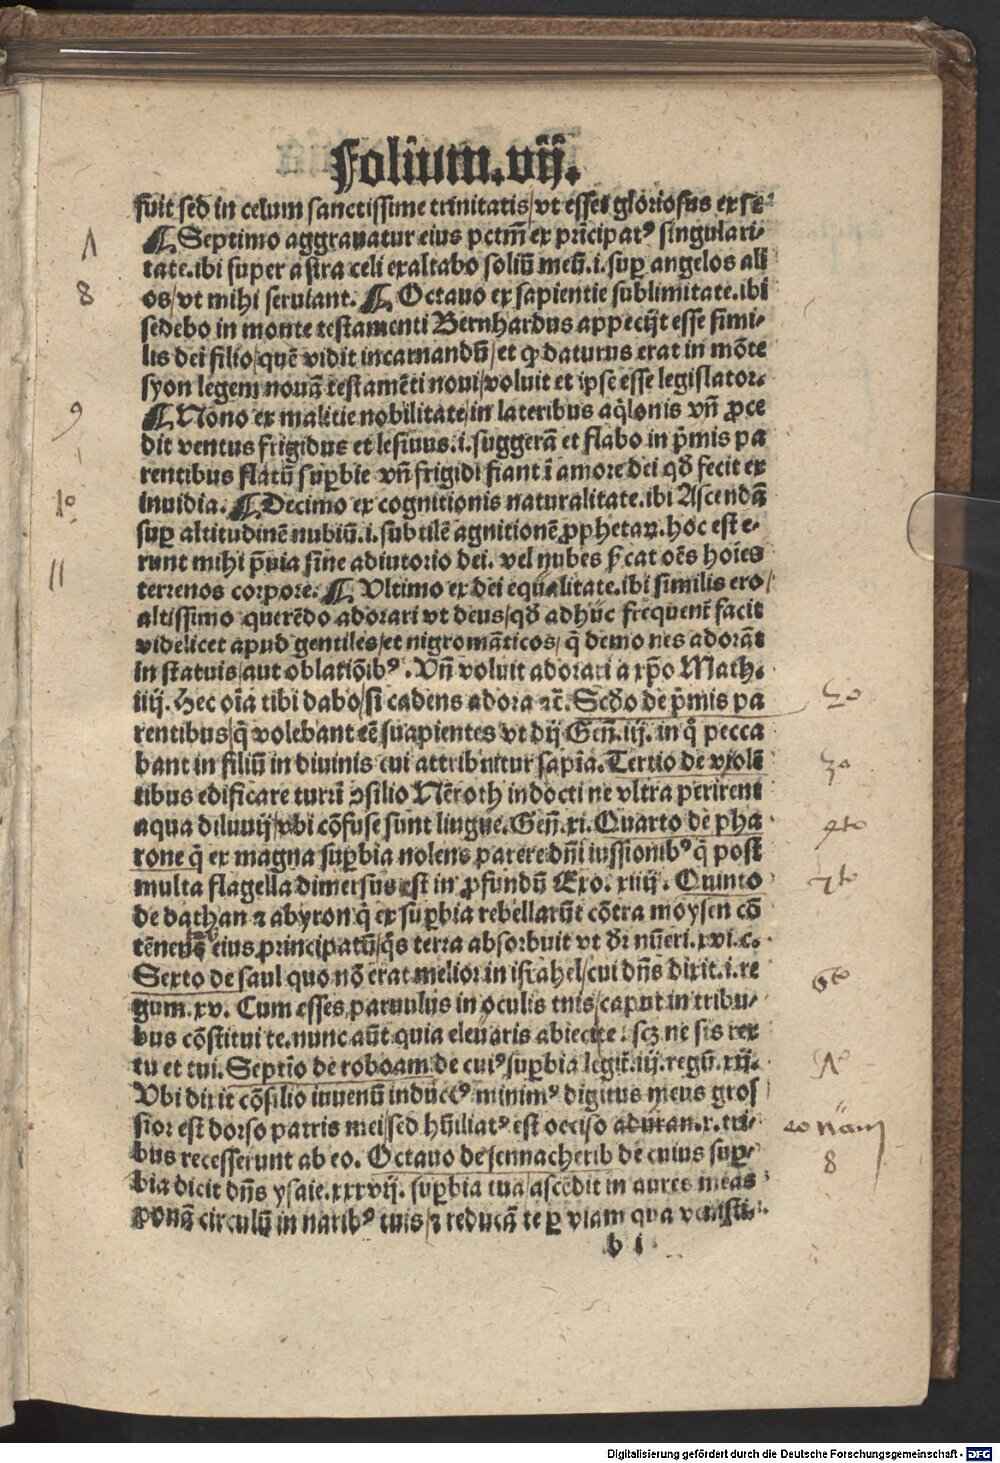 Folium.vij.
fuit sed in celum sanctissime trinitatis/vt esset gloriosus ex se
7
¶ Septimo aggrauatur eius pctm̄ ex pricipatꝰ singulari/
tate.ibi super astra celi exaltabo soliū meū.i.suꝑ angelos ali
8
os/vt mihi seruiant. ¶ Octauo ex sapientie sublimitate.ibi
sedebo in monte testamenti Bernhardus appecijt esse simi/
lis dei filio/quē vidit incarnandū/et ꝙ daturus erat in mōte
syon legem nouā testamēti noui/voluit et ipse esse legislator.
9
¶ Nono ex malitie nobilitate/in lateribus aq̇lonis vn̄ ꝓce
dit ventus frigidus et lesiuus.i.suggerā et flabo in p̄mis pa
rentibus flatū suꝑbie vn̄ frigidi fiant ī amore dei qđ fecit ex
10
inuidia. ¶ Decimo ex cognitionis naturalitate.ibi Ascendā
suꝑ altitudinē nubiū.i.subtilē agnitionē ꝓphetaꝝ.hoc est e/
11
runt mihi p̄uia sine adiutorio dei. vel nubes cat oēs hoīes
terrenos corpore. ¶ Vltimo ex dei equalitate.ibi similis ero/
altissimo querēdo adorari vt deus/qđ adhuc frequent̄ facit
videlicet apud gentiles/et nigromāticos/q̇ demones adorāt
in statuis/aut oblatiōibꝰ. Vn̄ voluit adorari a xp̄o Math.
iiij. Hec oīa tibi dabo/si cadens adora ⁊c̄. Scđo de p̄mis pa
2o
rentibus/q̇ volebant eē suapientes vt dij Gen̄.iij. in q̇ pecca
bant in filiū in diuinis cui attribuitur sapīa. Tertio de volē
3o
tibus edificare turrī ꝯsilio Nēroth indocti ne vltra perirent
aqua diluuij/vbi cōfuse sunt lingue. Gen̄.xi. Quarto de pha
4to
rone q̇ ex magna suꝑbia nolens parere dn̄i iussionibꝰ q̇ post
multa flagella dimersus est in ꝓfundū Exo. xiiij. Quinto
5to
de dathan ⁊ abyron q̇ ex suꝑbia rebellarūt cōtra moysen cō
tēnens eius principatū/q̇s terra absorbuit vt đr nūeri.xvi.c.
Sexto de saul quo nō erat melior in israhel/cui dn̄s dixit.i.re
6to
gum.xv. Cum esses paruulus in oculis tuis/caput in tribu/
bus cōstitui te.nunc aūt quia eleuaris abiecite. scꝫ ne sis rex
tu et tui. Septīo de roboam de cuiꝰ suꝑbia legit̄.iij.regū.xij.
7o
Vbi dixit cōsilio iuuenū inductꝰ minimꝰ digitus meus gros
sior est dorso patris mei/sed hūiliatꝰ est occiso aduram.x.tri/
bus recesserunt ab eo. Octauo de sennacherib de cuius suꝑ/
8
bia dicit dn̄s ysaie.xxxvij. suꝑbia tua/ascēdit in aures meas
ponā circulū in naribꝰ tuis/⁊ reducā te ꝑ viam qua venisti.
b i
Digitalisierung gefördert durch die Deutsche Forschungsgemeinschaft - DFG